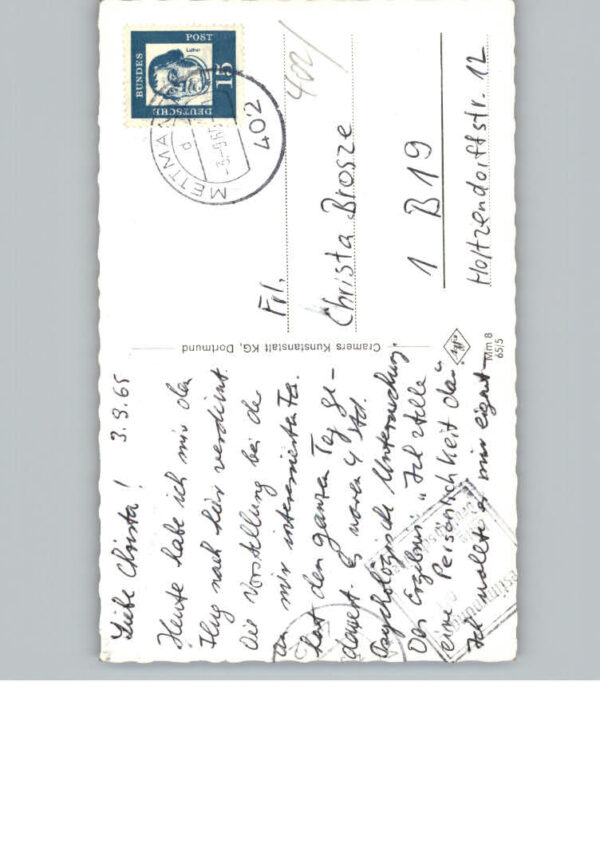 Liebe Christa! 3.9.65
Heute habe ich mir den
Flug nach hier verdient.
Die Vorstellung bei de
an mir interessierten Fa.
hat den ganzen Tag ge-
dauert. Es waren 4 Std.
Psychologische Untersuchung.
Das Ergebnis: "Ich stelle
eine Persönlichkeit da."
Ich wollte es mir eigent-
Cramers Kunstanstalt KG, Dortmund
Mm 8
65/5
DEUTSCHE
BUNDES
POST
Luther
15
402
METTMANN
d
402/
Frl.
Christa Brosze
1 B19
Holtzendorffstr. 12